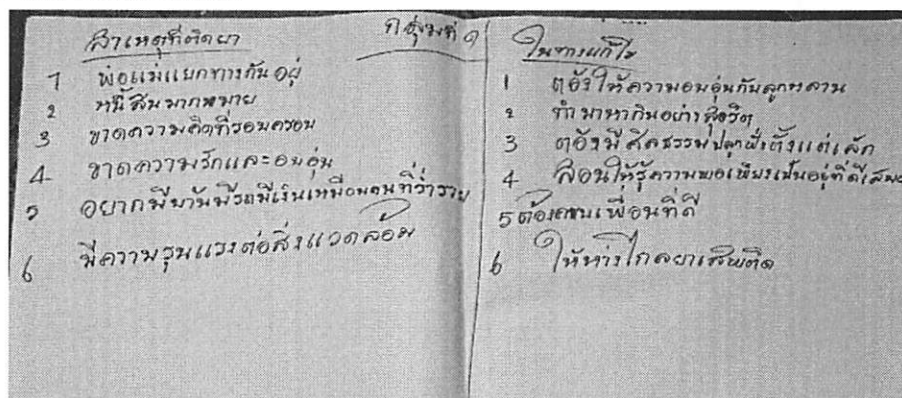 กลุ่มที่ ๑
สาเหตุที่ติดยา
1 พ่อแม่แยกทางกันอยู่
2 หนี้สินมากหมาย
3 ขาดความคิดที่รอบครอบ
4 ขาดความรักและอบอุ่น
5 อยากมีบ้านมีรถมีเงินเหมือนคนที่ร่ำราย
6 มีความรุนแรงต่อสิ่งแวดล้อม
ในทางแก้ไข
1 ต้องให้ความอบอุ่นกับลูกหลาน
2 ทำมาหากินอย่างสุจริต
3 ต้องมีศิลธรรมปลูกฝั่งตั้งแต่เล็ก
4 สอนให้รู้ความพอเพียงเป็นอยู่ที่ดีเสมอ
5 ต้องคบเพื่อนที่ดี
6 ให้ห่างไกลยาเสพติด